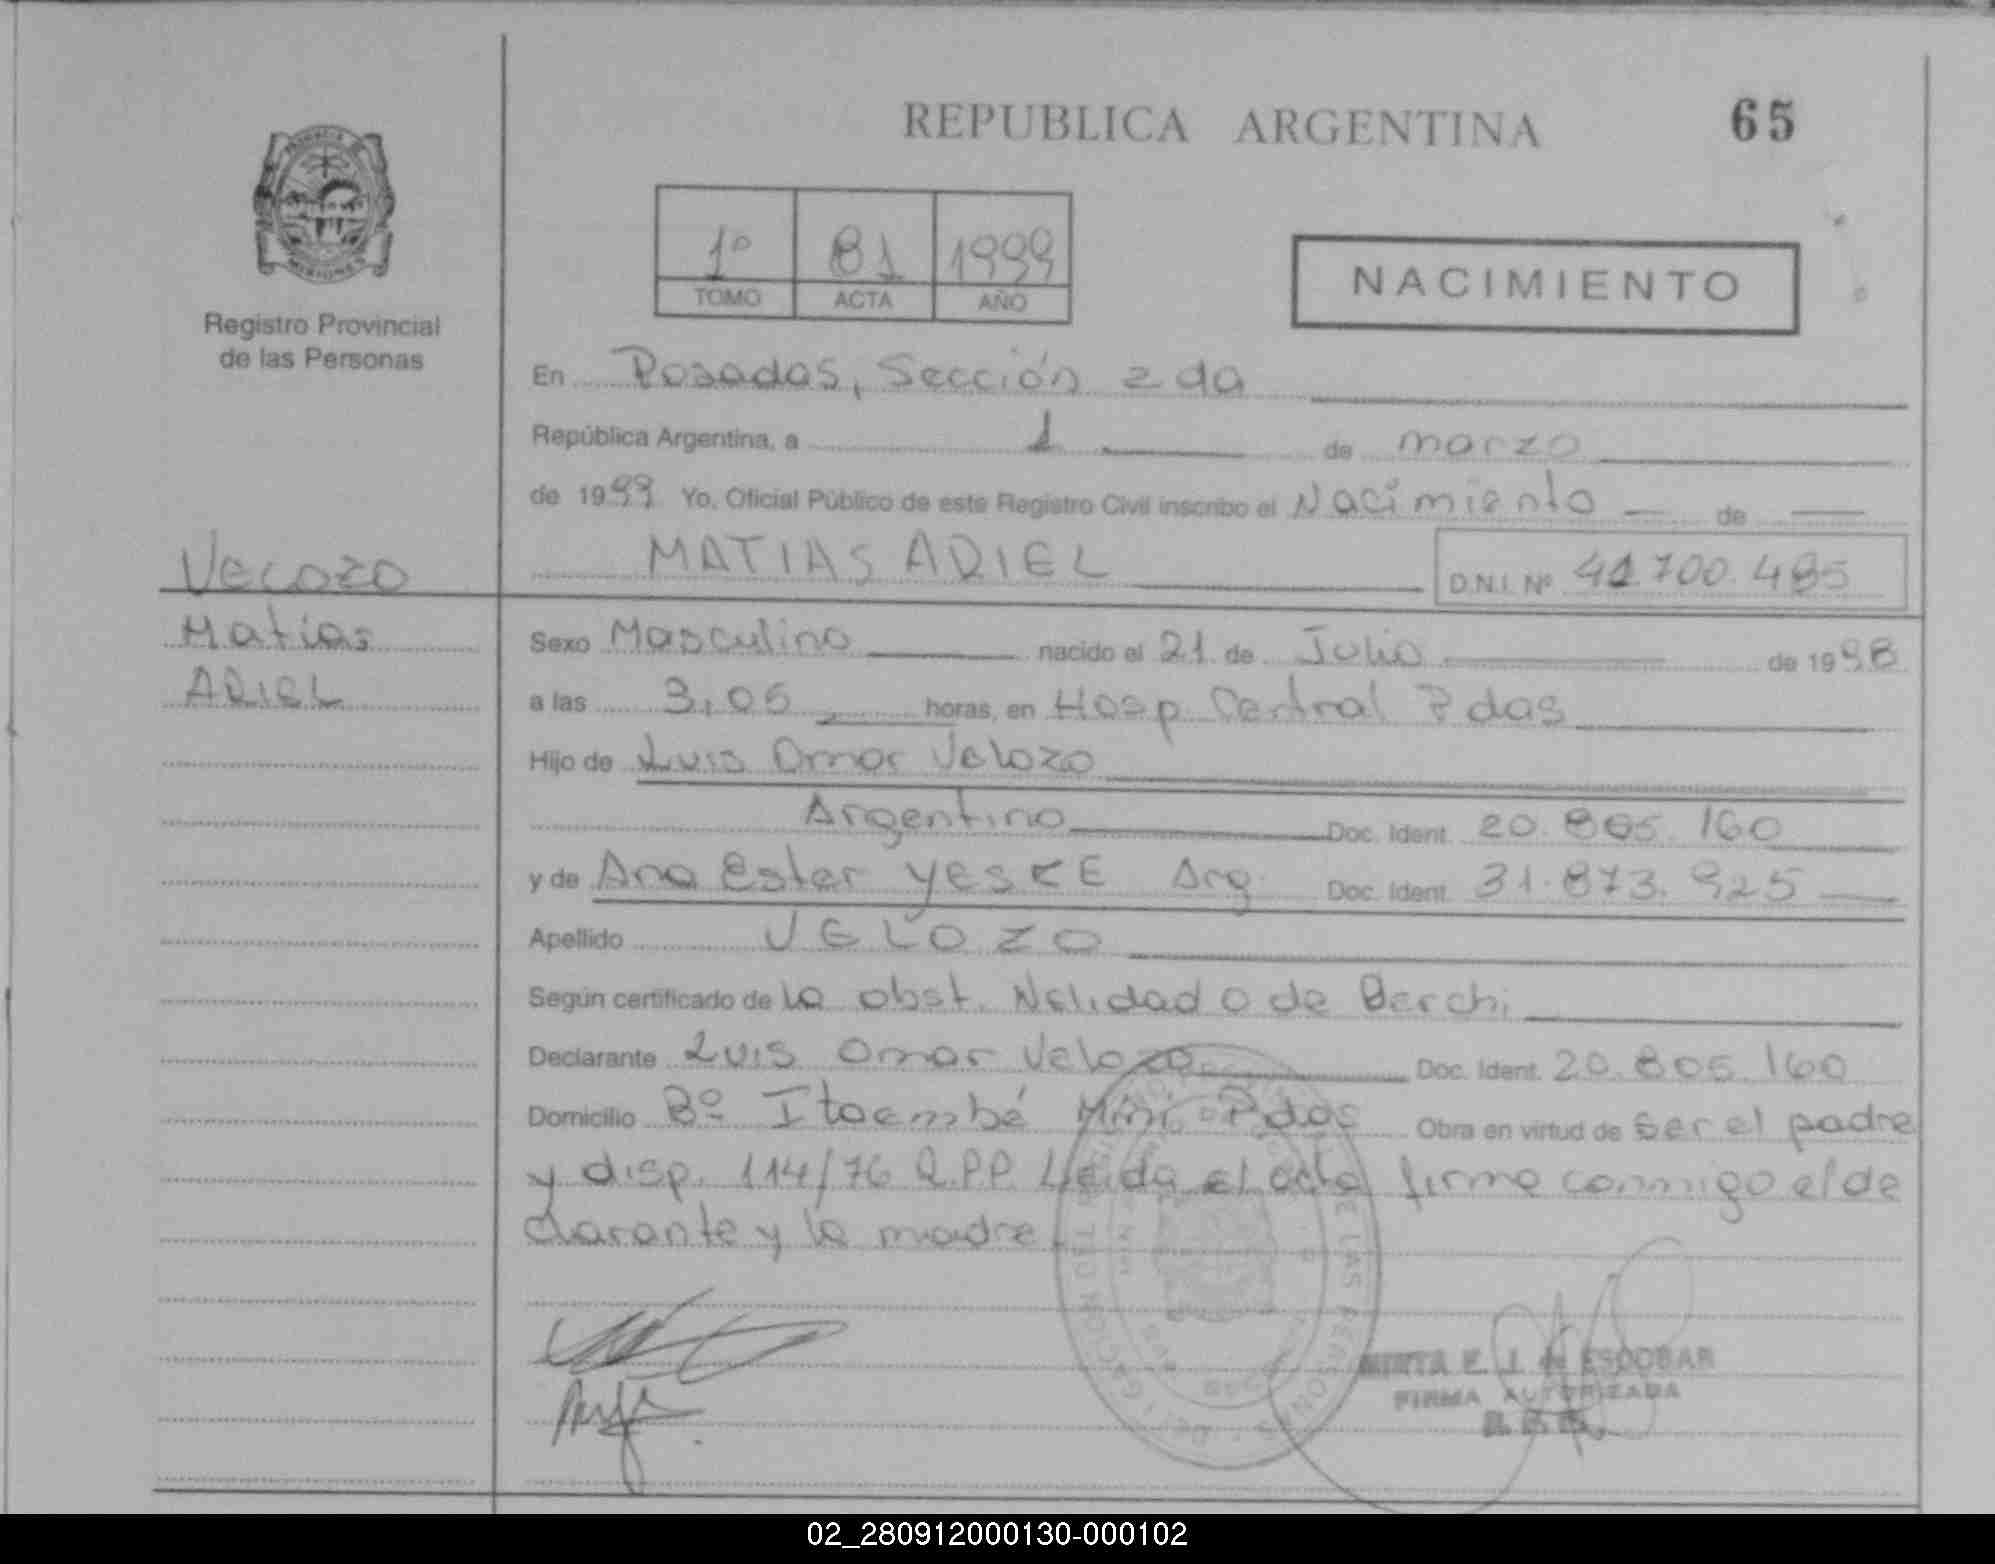 REPUBLICA ARGENTINA
65
1º 81 1999
TOMO ACTA AÑO
NACIMIENTO
MISIONES
Registro Provincial
de las Personas
En Posadas, Sección 2da
República Argentina, a 1 de marzo
de 1999 Yo, Oficial Público de este Registro Civil inscribo el Nacimiento de
MATIAS ARIEL D.N.I. Nº 41.700.485
Velozo
Matías
ARIEL
Sexo Masculino nacido el 21 de Julio de 1998
a las 3,05 horas, en Hosp Central Pdas
Hijo de Luis Omar Velozo
Argentino Doc. Ident. 20.805.160
y de Ana Ester YESKE Arg. Doc. Ident. 31.873.925
Apellido VELOZO
Según certificado de la obst. Nelida de
Declarante Luis Omar Velozo Doc. Ident. 20.805.160
Domicilio Bº Itaembé Mini Pdas Obra en virtud de ser el padre
y disp. 114/76 R.P.P. Leida el acta firma conmigo el de
clarante y la madre.
DE LAS PERSONAS
MIRTA E. J. de ESCOBAR
FIRMA AUTORIZADA
02_280912000130-000102